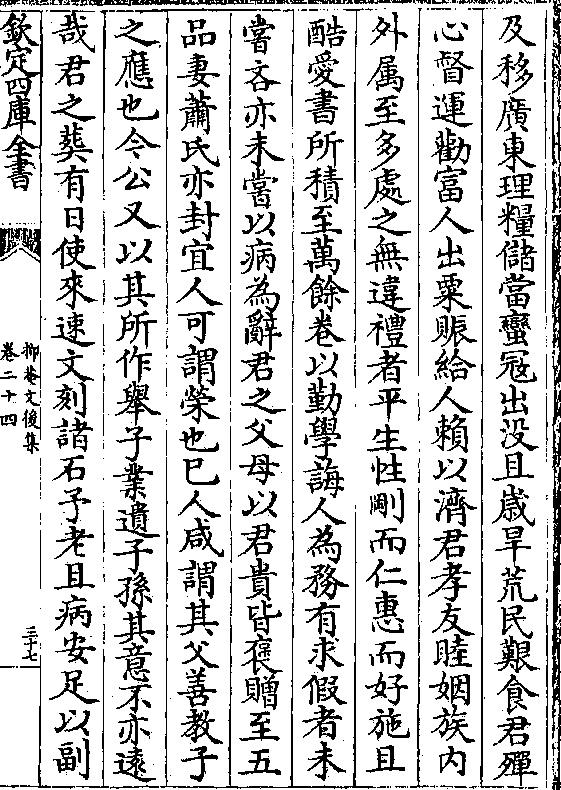 及移廣東理糧儲當蠻冦出没且歳旱荒民艱食君殫
心督運勸富人出粟賑給人賴以濟君孝友睦姻族内
外属至多處之無違禮者平生性剛而仁惠而好施且
酷愛書所積至萬餘卷以勤學誨人為務有求假者未
嘗吝亦未嘗以病為辭君之父母以君貴皆褒贈至五
品妻蕭氏亦封宜人可謂榮也已人咸謂其父善教子
之應也今公又以其所作舉子業遺子孫其意不亦遠
哉君之葬有日使來速文刻諸石予老且病安足以副
欽定四庫全書
抑菴文後集
卷二十四
三十七